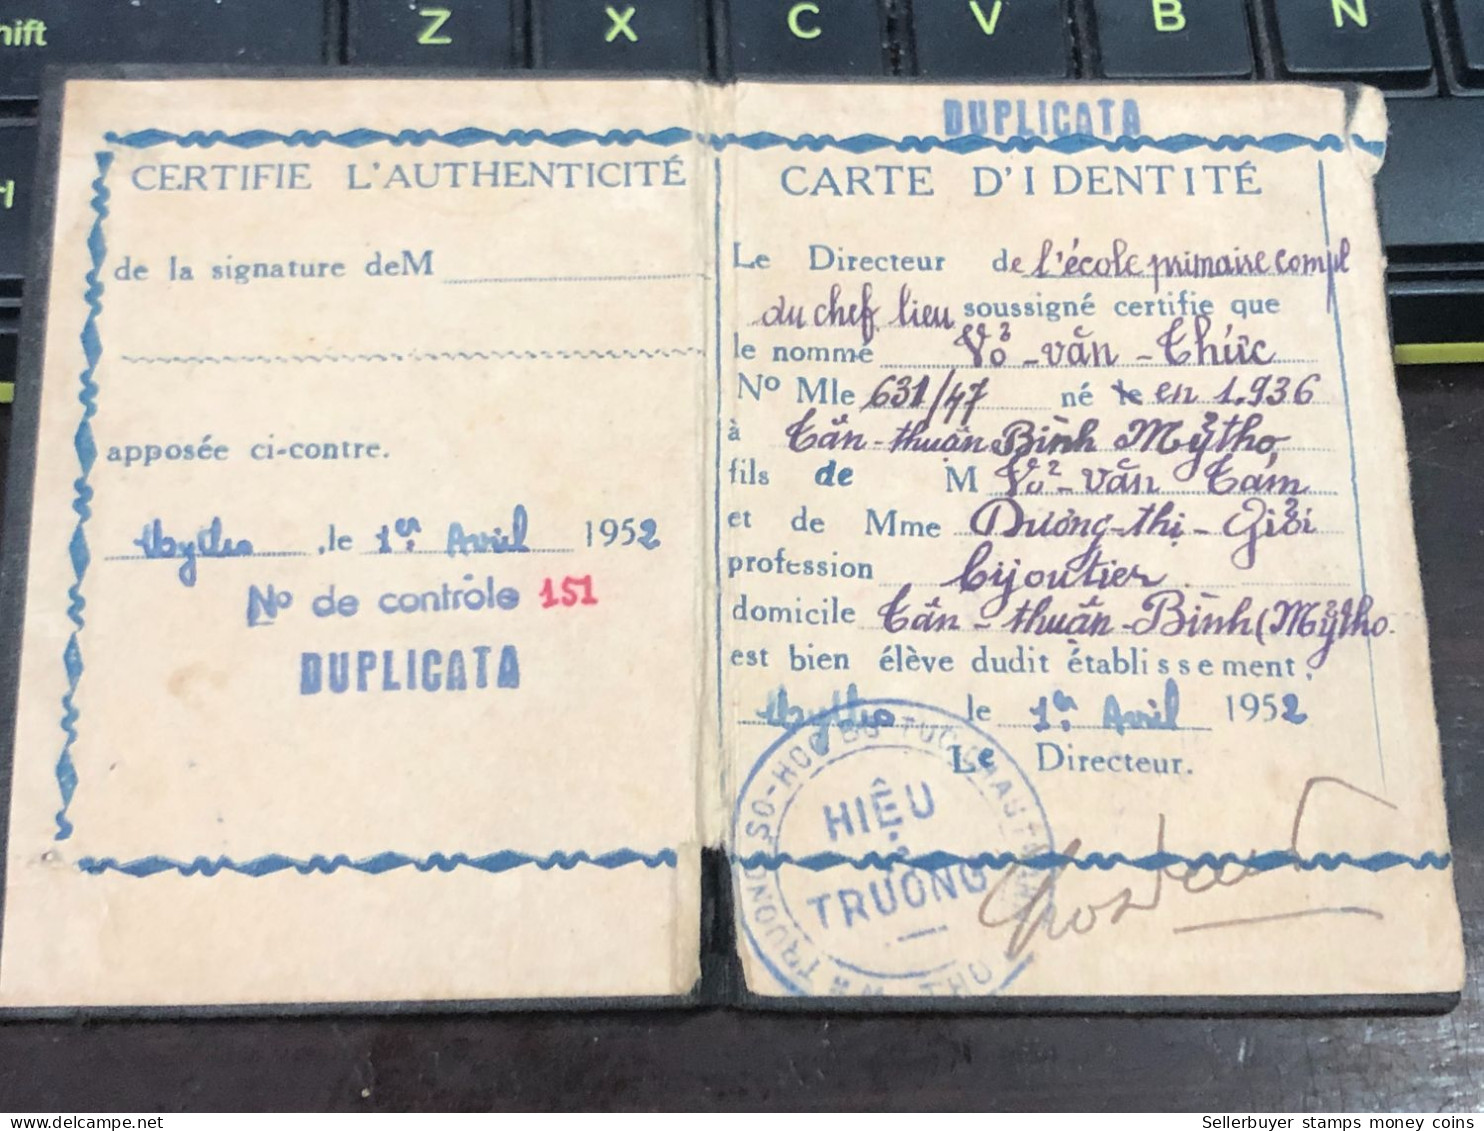 Shift Z X C V B N
CERTIFIE L'AUTHENTICITÉ
de la signature de M
apposée ci-contre.
Mytho, le 1er Avril 1952
No de contrôle 151
DUPLICATA
DUPLICATA
CARTE D'IDENTITÉ
Le Directeur de l'école primaire compl
du chef lieu soussigné certifie que
le nommé Võ-văn-Thức
No Mle 631/47 né le en 1.936
à Tân-thuận Bình Mỹtho,
fils de M Võ-văn Tám
et de Mme Dương-thị-Giỏi
profession bijoutier
domicile Tân-thuận-Bình (Mỹtho
est bien élève dudit établissement,
Mytho le 1er Avril 1952
Le Directeur.
HIỆU
TRUONG
Sellerbuyer stamps money coins